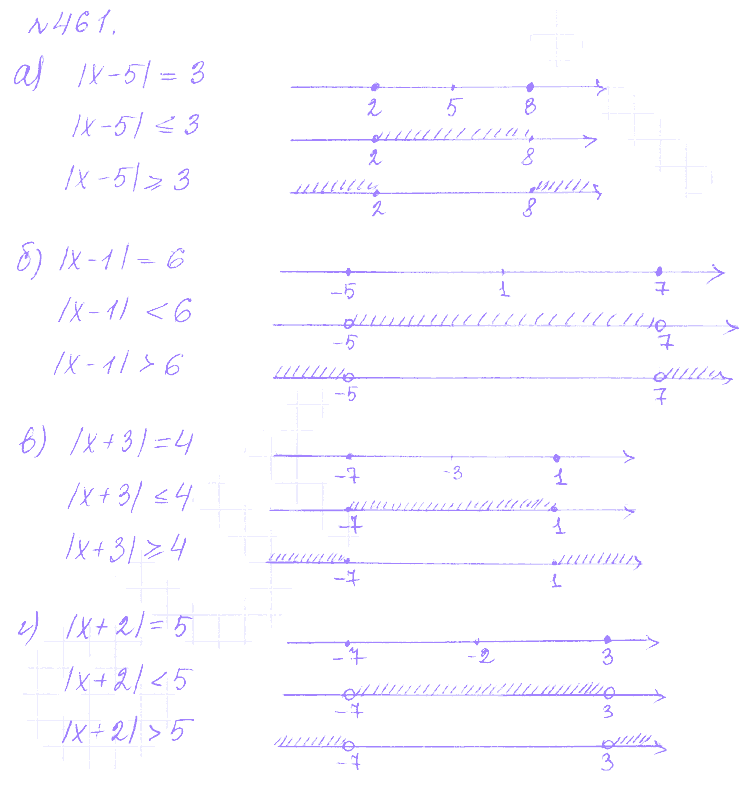 №461.
а) |x-5| = 3
2 5 8
|x-5| ≤ 3
2 8
|x-5| ≥ 3
2 8
б) |x-1| = 6
-5 1 7
|x-1| < 6
-5 7
|x-1| > 6
-5 7
в) |x+3| = 4
-7 -3 1
|x+3| ≤ 4
-7 1
|x+3| ≥ 4
-7 1
г) |x+2| = 5
-7 -2 3
|x+2| < 5
-7 3
|x+2| > 5
-7 3